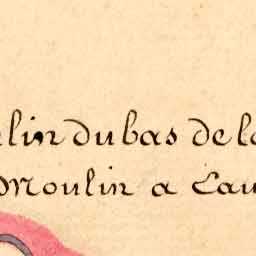 lin du bas de la
Moulin a Eau